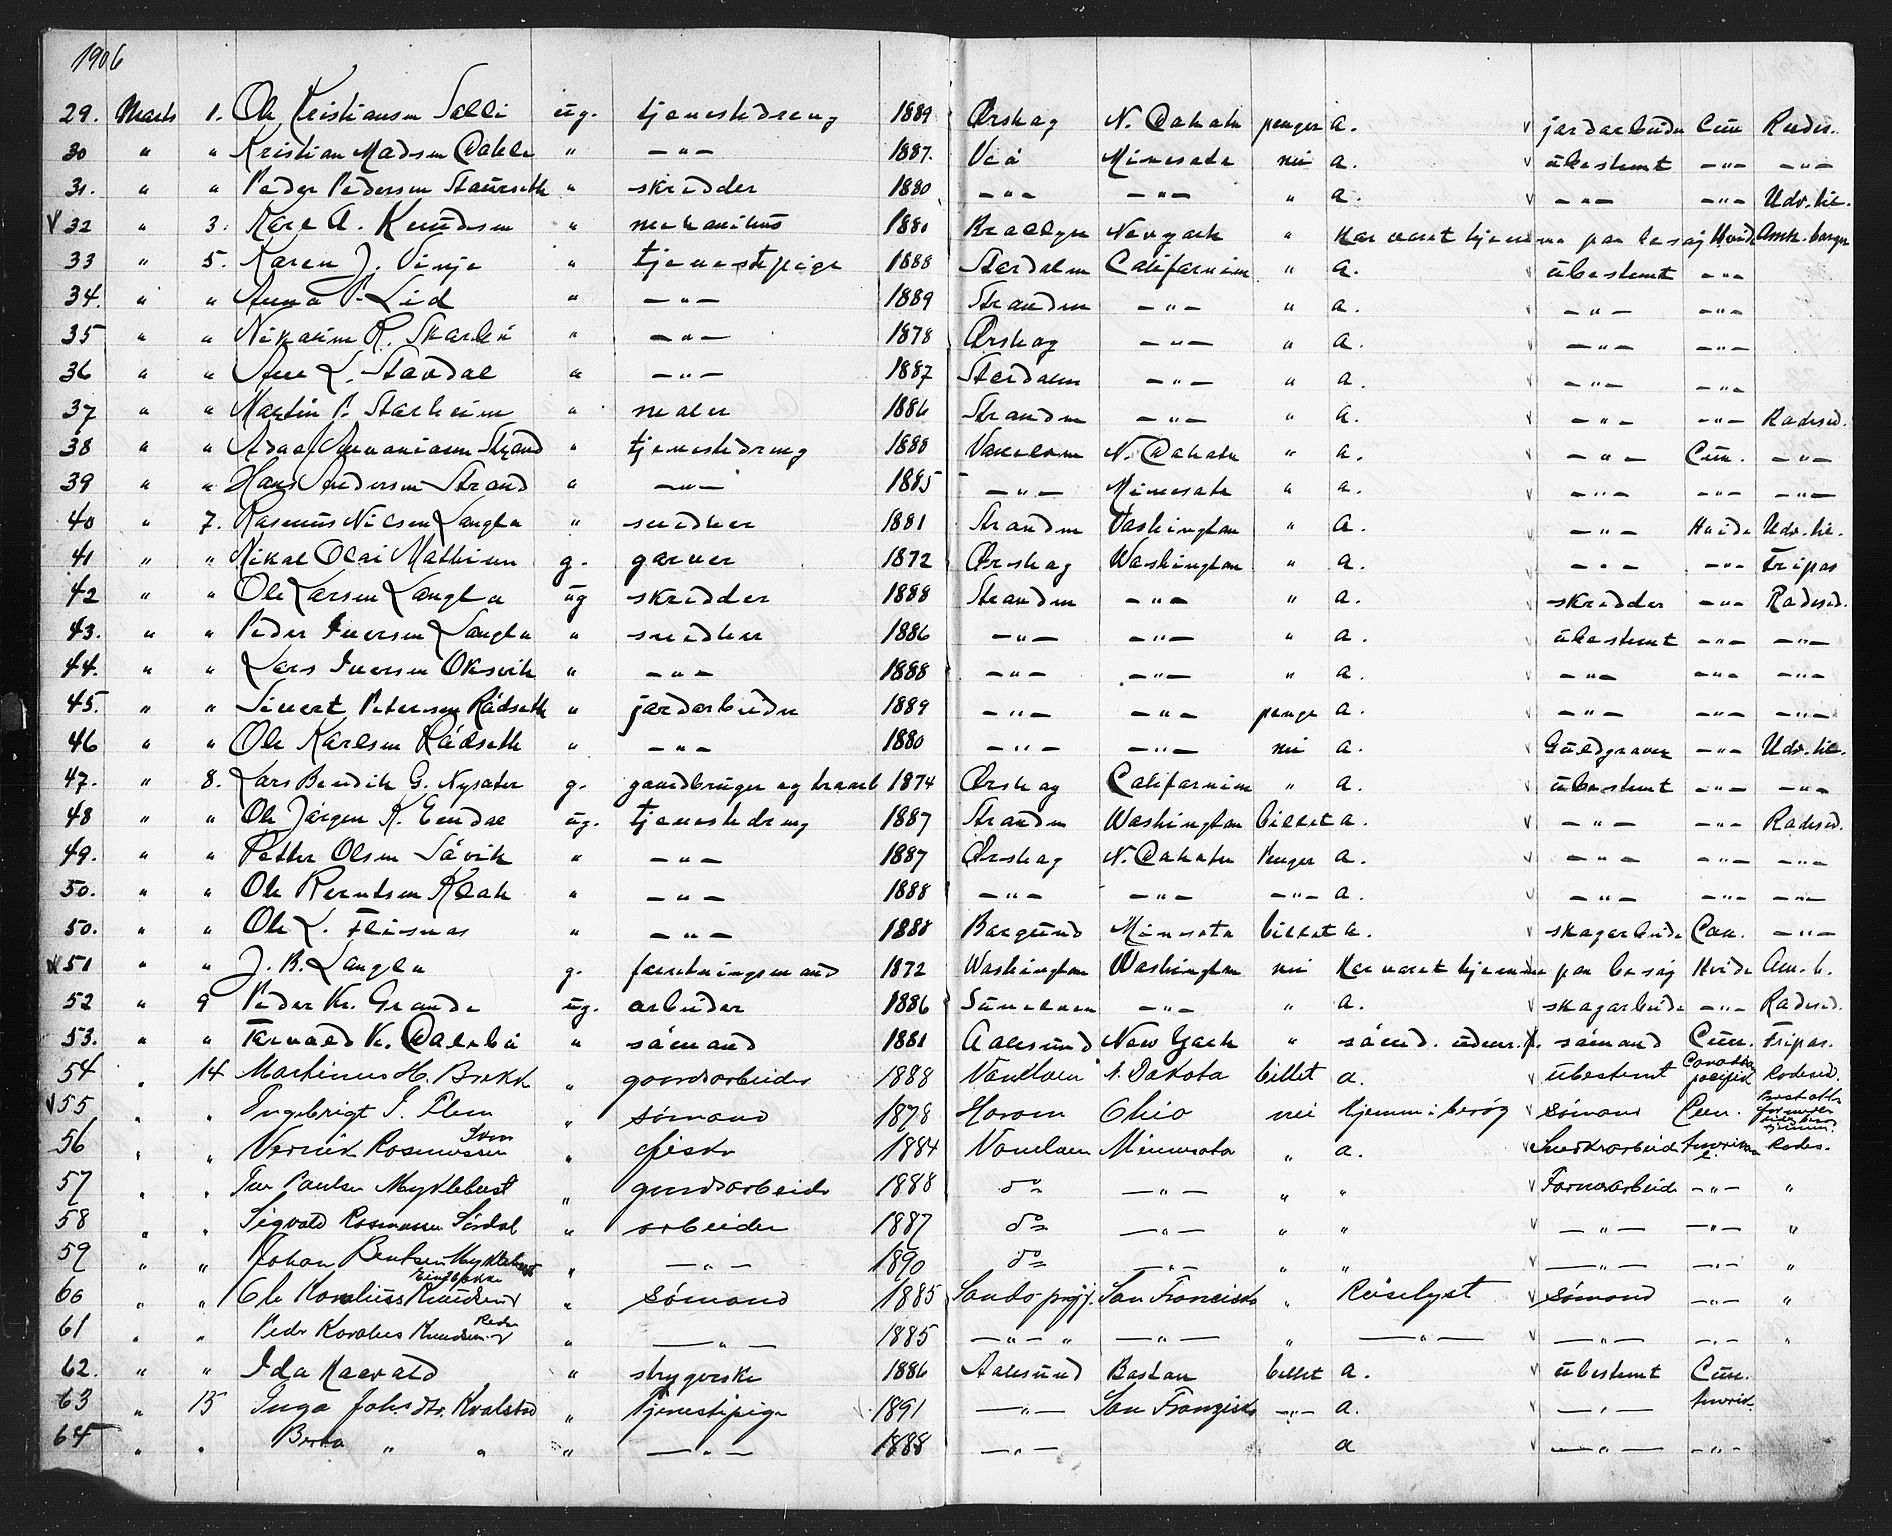 1906
29. Marts 1. Ole Kristiansen ug. tjenestedreng 1889 Ørskog N. Dakota penger a. v jordarbeide Cun
30 " " Kristian Madsen " — " — 1887. Minesota nei a. v ubestemt — " — — " —
31. " " Peder Pedersen Staurseth " skrædder 1880 — " — — " — " a. v — " — — " — Udv. til.
v 32 " 3. Karl A. Knudsen " mekanikus 1881 Newyork " Har været hjemme paa besøg Hvide
33 " 5. Karen J. Vinje " tjenestepige 1888 Stordalen Californien " a. v ubestemt — " —
34. " " Anna P. Lid " — " — 1889 Stranden — " — " a. v — " — — " —
35 " " R. " — " — 1878 Ørskog — " — " a. v — " — — " —
36 " " L. Stavdal " — " — 1887 Stordalen — " — " a. v — " — — " —
37 " " Martin P. Starheim " maler 1886 Stranden — " — " a. v — " — — " — Rodesed.
38 " " Strand " tjenestedreng 1888 N. Dakota " a. v — " — Cun. — " —
39 " " Hans Andersen Strand " — " — 1885 — " — Minesota " a. v — " — — " — — " —
40 " 7. Rasmus Nilsen Langlo " snedker 1881 Stranden Vashington " a. v — " — Hvide Udv. til.
41 " " Nikal Olai Mathisen g. garver 1872 Ørskog Washington " a. — " — — " — Fripas
42 " " Ole Larsen Langlo ug skrædder 1888 Stranden — " — " a. v skrædder — " — Rodesed.
43. " " Peder Iversen Langlo " snedker 1886 — " — — " — " a. v ubestemt — " — — " —
44. " " Lars Iversen Oksvik " — " — 1888 — " — — " — " a. v — " — — " — — " —
45. " " Sivert Petersen Rødseth " jordarbeider 1889 — " — — " — penge a. v — " — — " — — " —
46 " " Ole Karlsen Rødseth " — " — 1880 — " — — " — nei a. v Guldgraver — " — Udv. til.
47. " 8. Lars Bendik G. Nysæter g. gaardbruger og 1874 Ørskog Californien " a. v ubestemt — " — — " —
48 " " Ole Jørgen K. ug. tjenestedreng 1887 Stranden Washington billet a. v — " — — " — Rodesed.
49. " " Petter Olsen Søvik " — " — 1887 Ørskog N. Dakota Penger a. v — " — — " — — " —
50. " " Ole Berntsen " — " — 1888 — " — — " — — " — a. v — " — — " — — " —
50. " " Ole L. Flisnes " — " — 1888 Borgund Minesota billet a. v skogarbeide Can. — " —
v 51 " " J. B. Langlo g. forretningsmand 1872 Washington Washington nei Har været hjemme paa besøg Hvide Am. b.
52 " 9 Peder Kr. Grande ug. arbeider 1886 — " — " a. v skogarbeide — " — Rodesed.
53. " " Torvald K. " sømand 1881 Aalesund New York " v sømand Cun. Fripas.
54 " 14 Martinus H. Brekk " gaardsarbeider 1888 N. Dakota billet a. v ubestemt Canadian pacific Rodesed.
v 55 " " Ingebrigt I. Flem " sømand 1878 Haram Ohio nei hjemme i besøg v sømand Cun.
56 " " Rasmussen " fisker 1884 Minnesota " a. v Rodes.
57 " " Iver Paulsen Myklebust " gaardsarbeider 1888 do — " — " " v Farmarbeide — " — "
58 " " Sigvald Rasmussen " arbeider 1887 do — " — " " v — " — — " — "
59 " " Johan Bentsen Myklebust " — " — 1890 do — " — " " v — " — — " — "
60 " " Ole Kornelius Knudsen " sømand 1885 San Francisco " Reiselyst v sømand — " — "
61 " " Peder Knudsen " — " — 1885 — " — " — " — " — " — v — " — — " — "
62. " " Ida " strygerske 1886 Aalesund Boston billet a. v ubestemt Cun.
63 " 15 Inga " Tjenestepige 1891 — " — San Franzisko — " — a. v — " — Amerik.
64 " " " " " — " — 1888 — " — a v — " — — " —